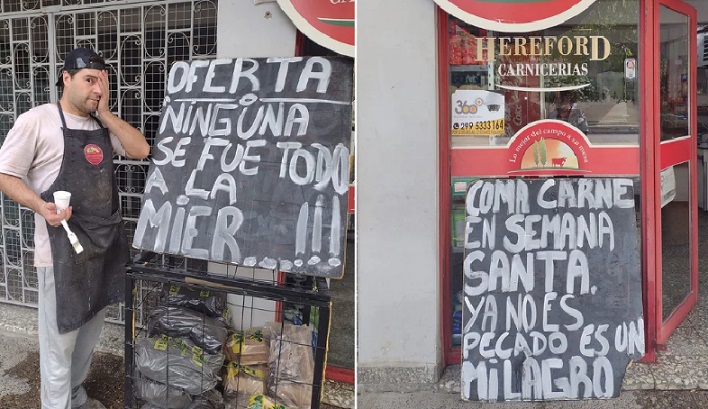 OFERTA
NINGUNA
SE FUE TODO
A LA
MIER...!!!
HEREFORD
CARNICERIAS
360
299 5333164
Lo mejor del campo a su mesa
COMA CARNE
EN SEMANA
SANTA.
YA NO ES
PECADO ES UN
MILAGRO